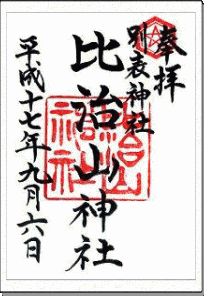 奉拝
別表神社
比治山神社
平成十七年九月六日